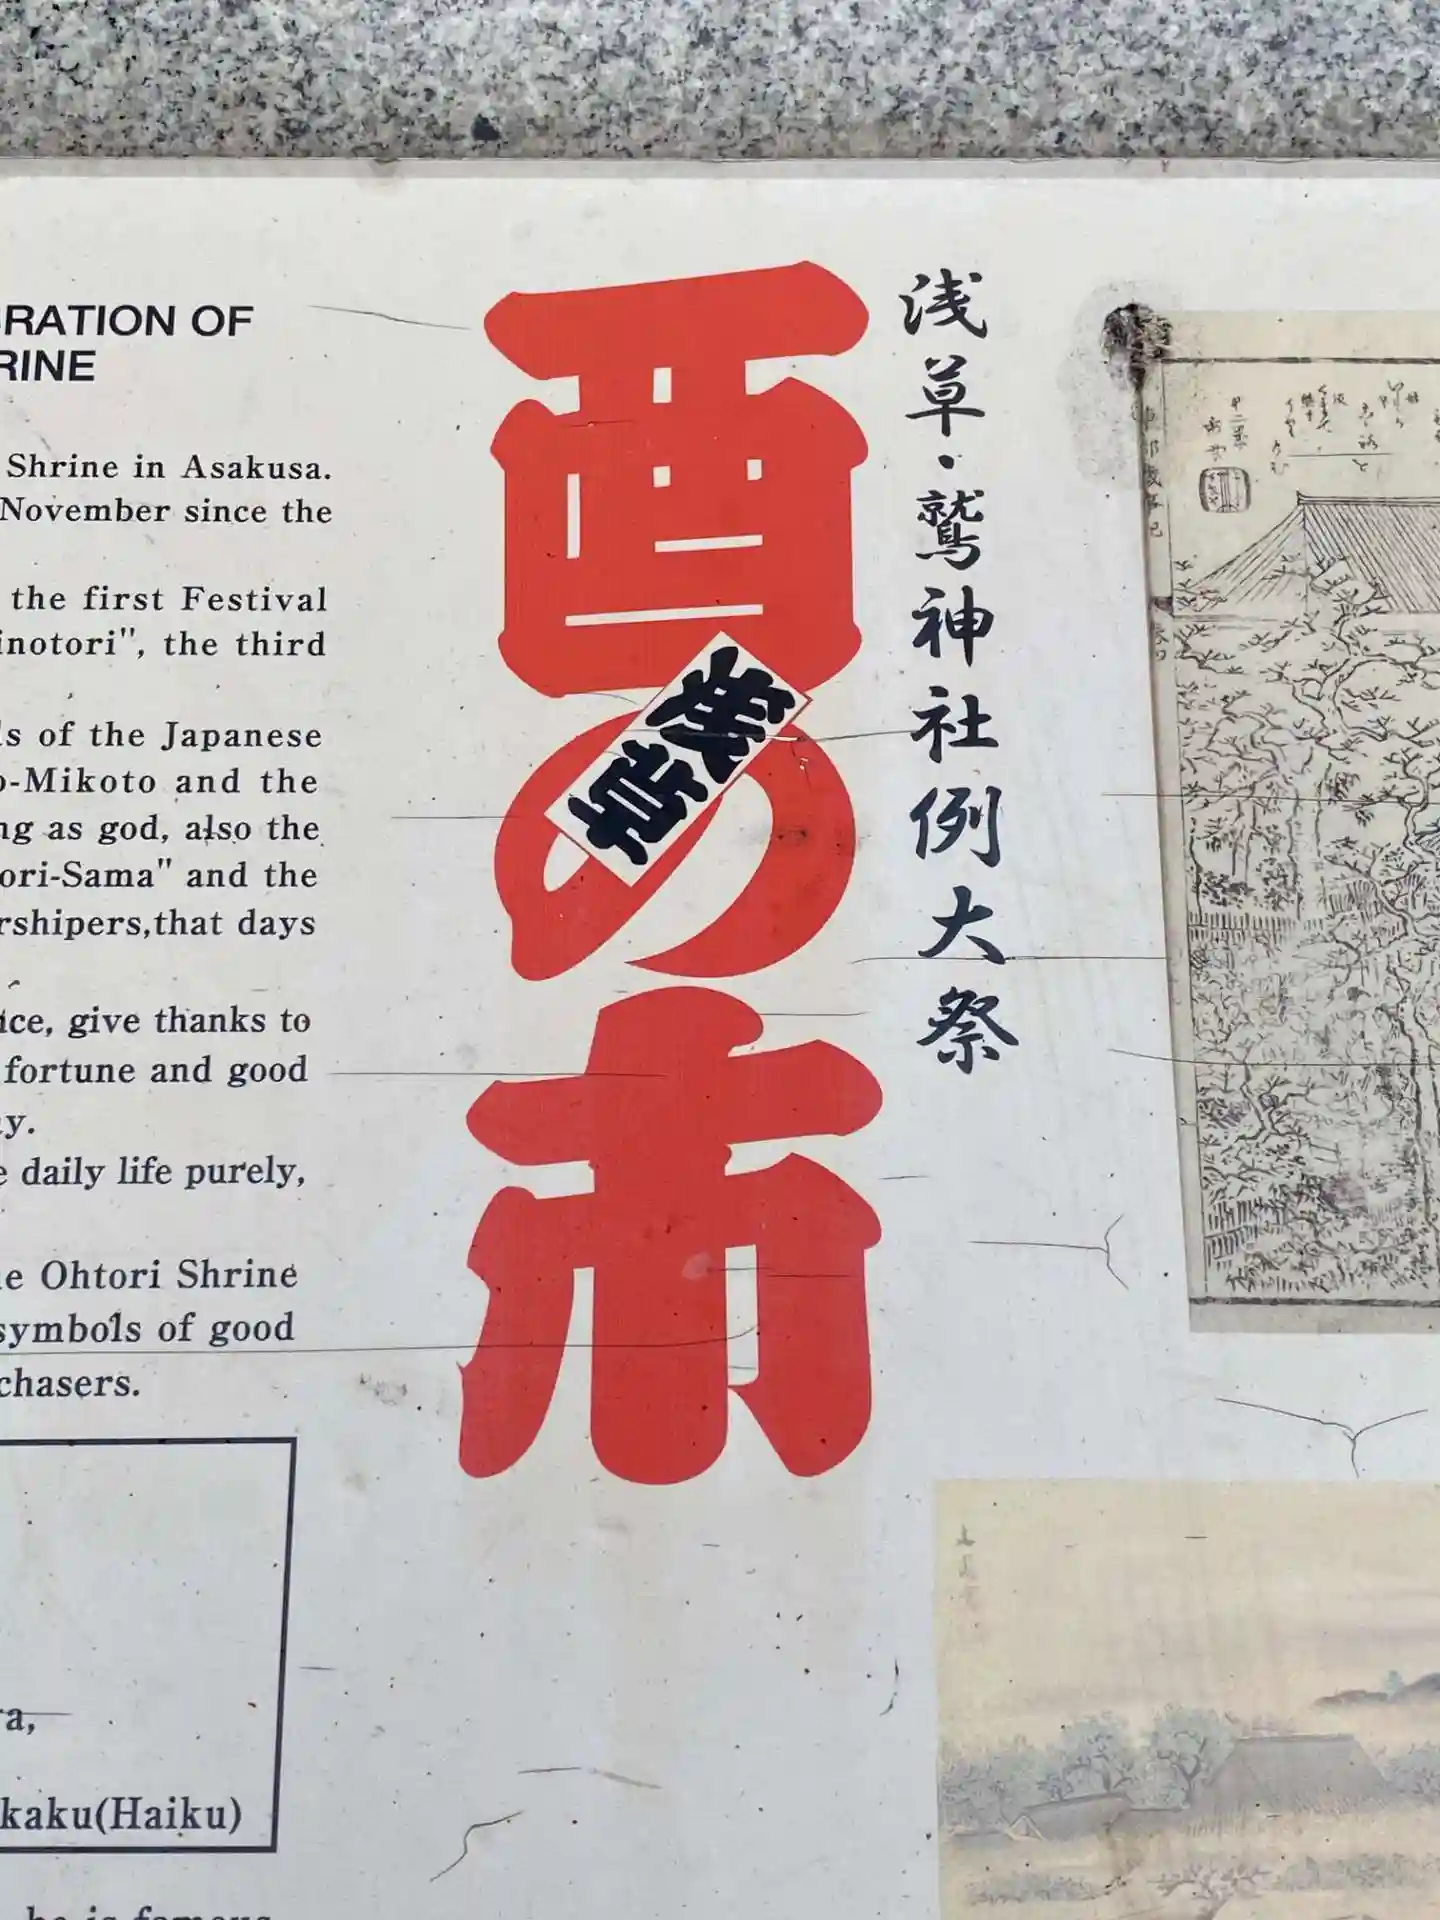 浅草・鷲神社例大祭
酉の市
浅草
RATION OF
RINE
Shrine in Asakusa.
November since the
the first Festival
inotori", the third
ls of the Japanese
o-Mikoto and the
ng as god, also the
ori-Sama" and the
rshipers,that days
ice, give thanks to
fortune and good
ay.
e daily life purely,
e Ohtori Shrine
symbols of good
chasers.
ra,
kaku(Haiku)
he is famous